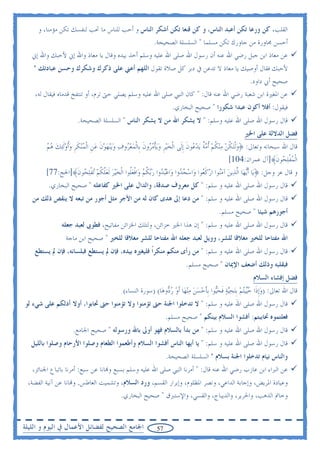 القلب، كن ورعا تكن أعبد الناس، و كن قنعا تكن أشكر الناس و أحب للناس ما تحب لنفسك تكن مؤمنا، و
أحسن مجاورة من جاورك تكن مسلما " السلسلة الصحيحة.
عن معاذ ابن جبل رضي الله عنه أن رسول الله صلى الله عليه وسلم أخذ بيده وقال يا معاذ والله إني لأحبك والله إني
لأحبك فقال أوصيك يا معاذ لا تدعن في دبر كل صلاة تقول اللهم أعني على ذكرك وشكرك وحسن عبادتك "
صحيح أبي داود.
عن المغيرة ابن شعبة رضي الله عنه قال: " كان النبي صلى الله عليه وسلم يصلي حتى ترم، أو تنتفخ قدماه فيقال له،
فيقول: أفلا أكون عبدا شكورا " صحيح البخاري.
قال رسول الله صلى الله عليه وسلم: " لا يشكر الله من لا يشكر الناس " السلسلة الصحيحة.
فضل الدلالة على الخير
قال الله سبحانه وتعالى: ﴿وَلْتَكُنْ مِنْكُمْ أُمَّةٌ يَدْعُونَ إِلَى الْخَيْرِ وَيَأْمُرُونَ بِالْمَعْرُوفِ وَيَنْهَوْنَ عَنِ الْمُنْكَرِ وَأُولَئِكَ هُمُ
الْمُفْلِحُونَ﴾[آل عمران:104]
و قال عز وجل: ﴿يَا أَيُّهَا الَّذِينَ آمَنُوا ارْكَعُوا وَاسْجُدُوا وَاعْبُدُوا رَبَّكُمْ وَافْعَلُوا الْخَيْرَ لَعَلَّكُمْ تُفْلِحُونَ﴾[الحج:77]
قال رسول الله صلى الله عليه و سلم: " كل معروف صدقة، والدال على الخير كفاعله " صحيح البخاري.
قال رسول الله صلى الله عليه و سلم: " من دعا إلى هدى كان له من الأجر مثل أجور من تبعه لا ينقص ذلك من
أجورهم شيئا " صحيح مسلم.
قال رسول الله صلى الله عليه و سلم: " إن هذا الخير خزائن، ولتلك الخزائن مفاتيح، فطوبى لعبد جعله
الله مفتاحا للخير مغلاقا للشر، وويل لعبد جعله الله مفتاحا للشر مغلاقا للخير " صحيح ابن ماجة
قال رسول الله صلى الله عليه و سلم: " من رأى منكم منكرا فليغيره بيده. فإن لم يستطع فبلسانه. فإن لم يستطع
فبقلبه وذلك أضعف الإيمان " صحيح مسلم.
فضل إفشاء السلام
قال الله تعالى: ﴿وَإِذَا حُيِّيتُمْ بِتَحِيَّةٍ فَحَيُّوا بِأَحْسَنَ مِنْهَا أَوْ رُدُّوهَا﴾ (سورة النساء)
قال رسول الله صلى الله عليه و سلم: " لا تدخلوا الجنة حتى تؤمنوا ولا تؤمنوا حتى تحابوا، أولا أدلكم على شيء لو
فعلتموه تحاببتم. أفشوا السلام بينكم " صحيح مسلم.
قال رسول الله صلى الله عليه و سلم: "من بدأ بالسلام فهو أولى بالله ورسوله " صحيح الجامع.
قال رسول الله صلى الله عليه و سلم: " يا أيها الناس أفشوا السلام وأطعموا الطعام وصلوا الأرحام وصلوا بالليل
والناس نيام تدخلوا الجنة بسلام " السلسلة الصحيحة.
عن البراء ابن عازب رضي الله عنه قال: " أمرنا النبي صلى الله عليه وسلم بسبع ونهانا عن سبع: أمرنا باتباع الجنائز،
وعيادة المريض، وإجابة الداعي، ونصر المظلوم، وإبرار القسم، ورد السلام، وتشميت العاطس. ونهانا عن آنية الفضة،
وخاتم الذهب، والحرير، والديباج، والقسي، والإستبرق " صحيح البخاري.
57 الجامع الصحيح لفضائل الأعمال في اليوم و الليلة